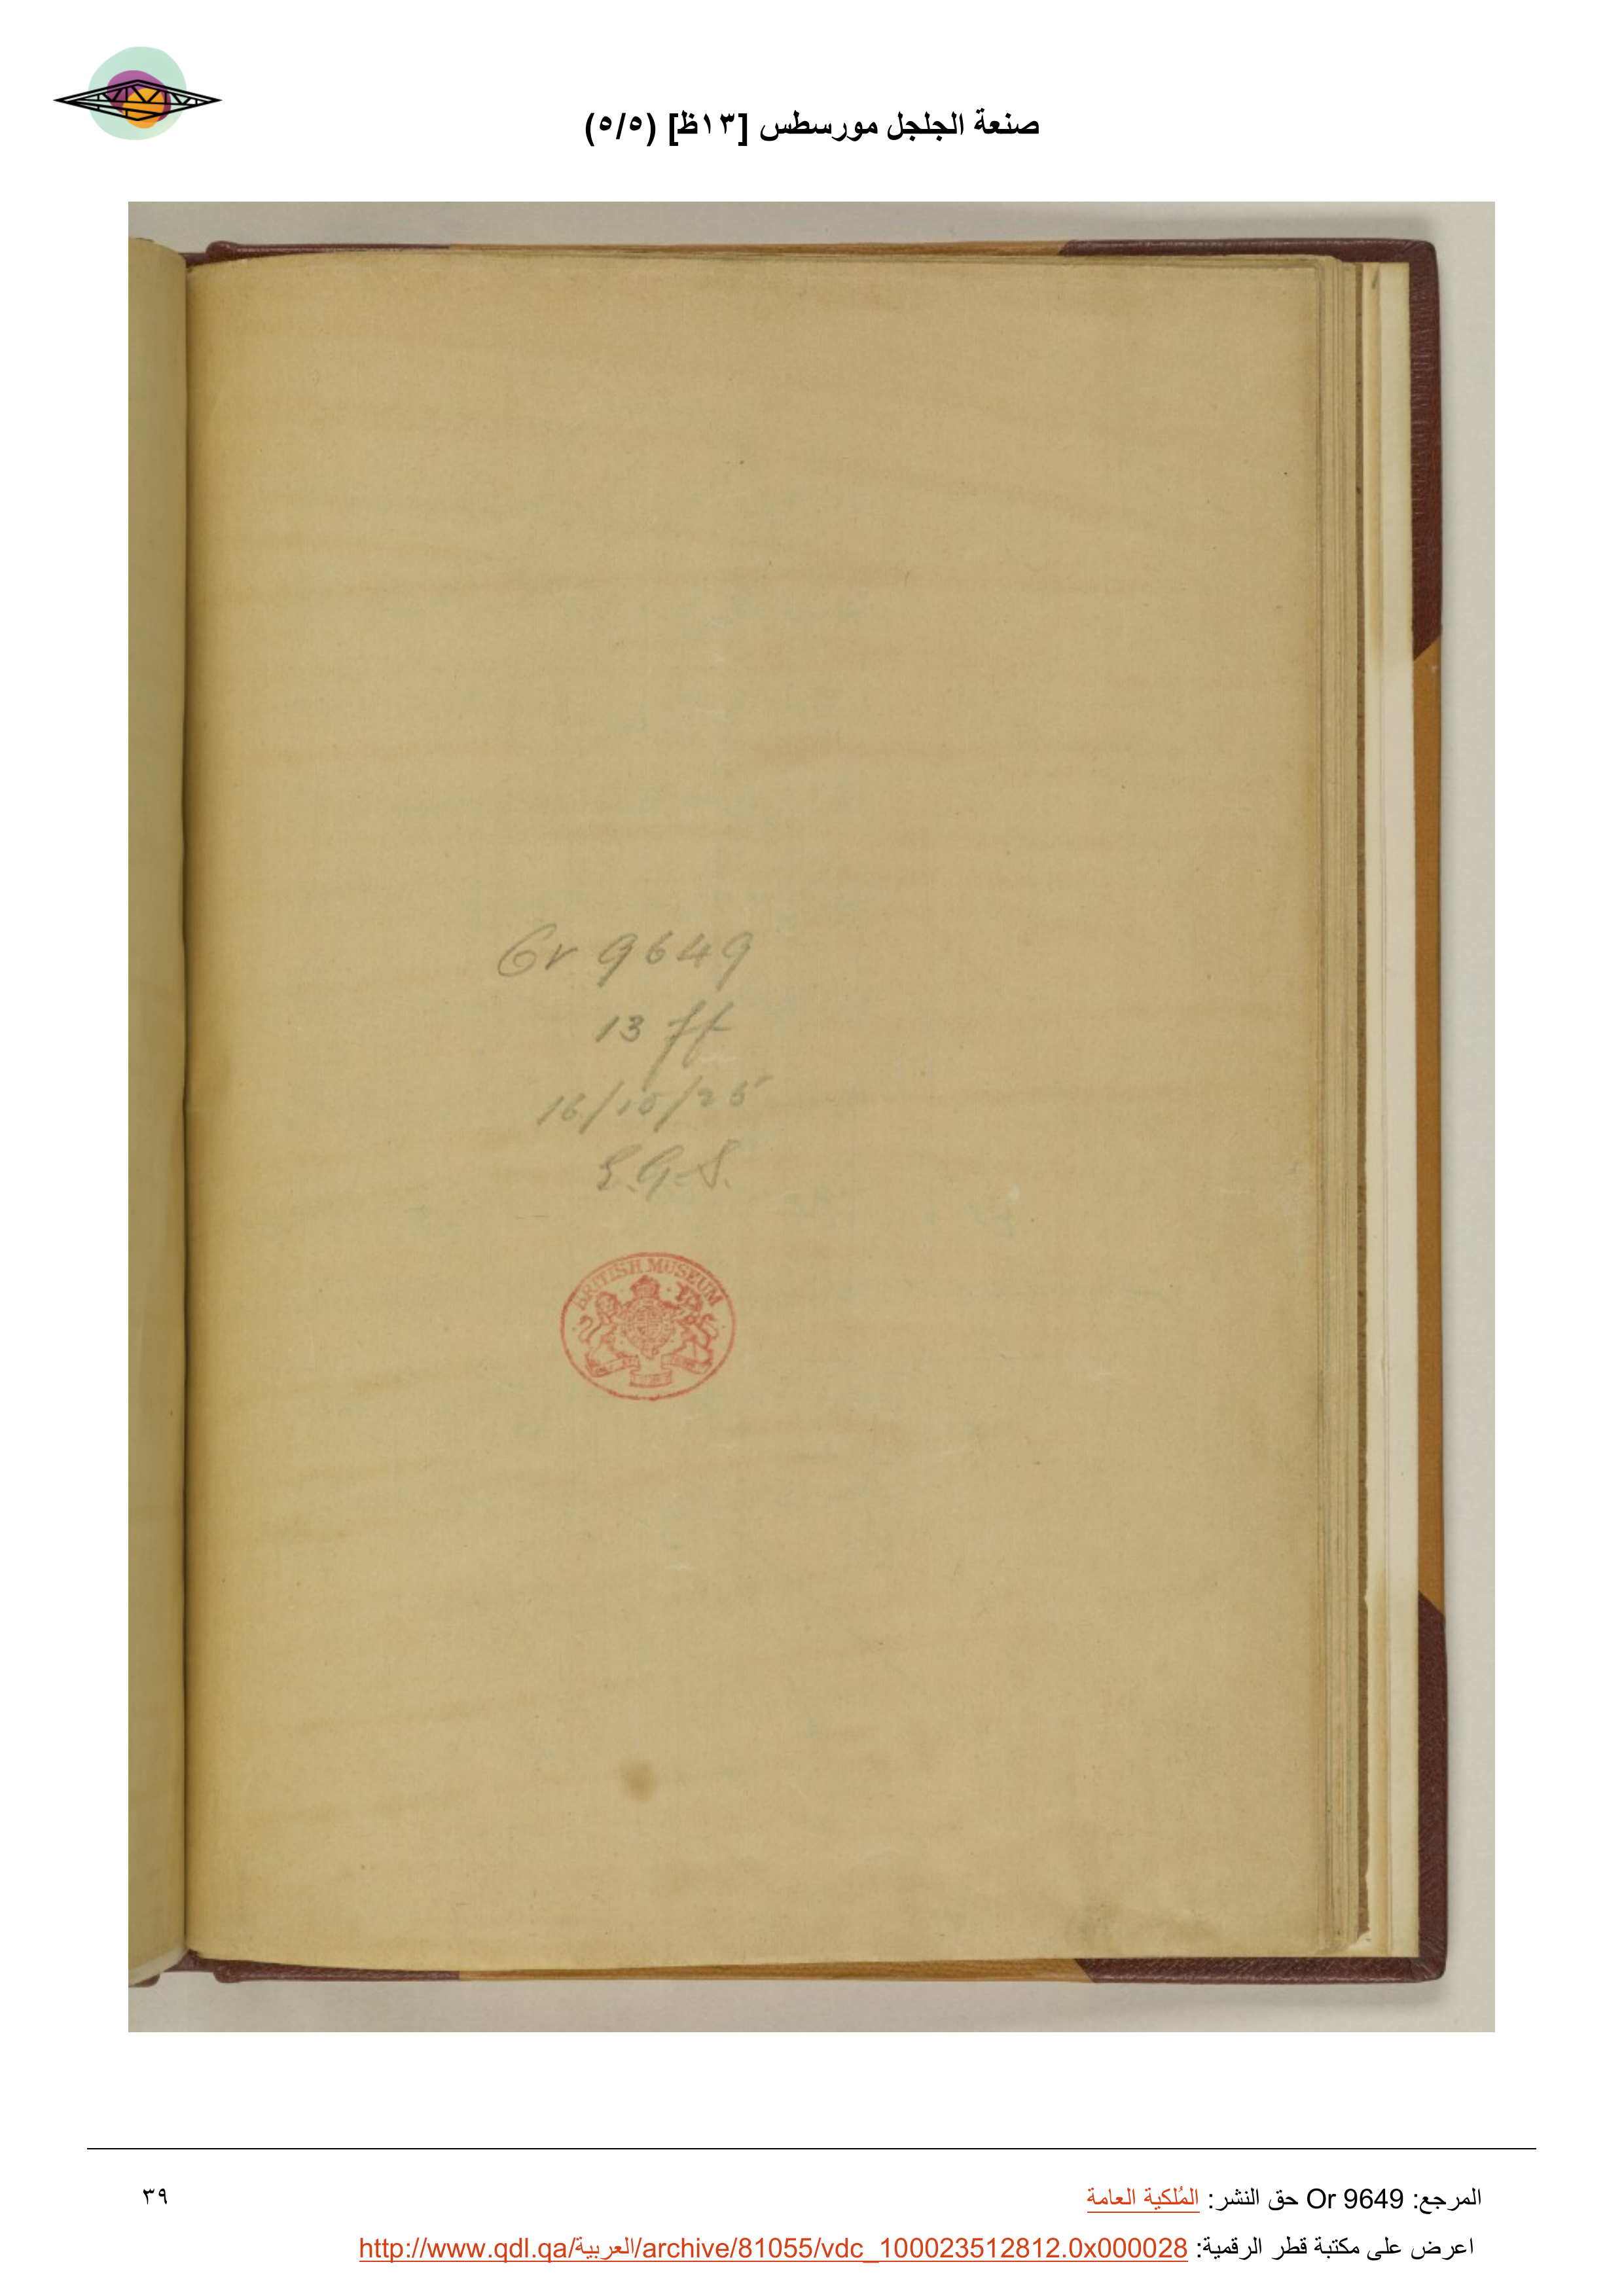 صنعة الجلجل مورسطس [١٣ظ] (٥/٥)
Or 9649
13 ff
16/10/25
E.G.S.
BRITISH MUSEUM
المرجع: Or 9649 حق النشر: المُلكية العامة
٣٩
اعرض على مكتبة قطر الرقمية: http://www.qdl.qa/العربية/archive/81055/vdc_100023512812.0x000028